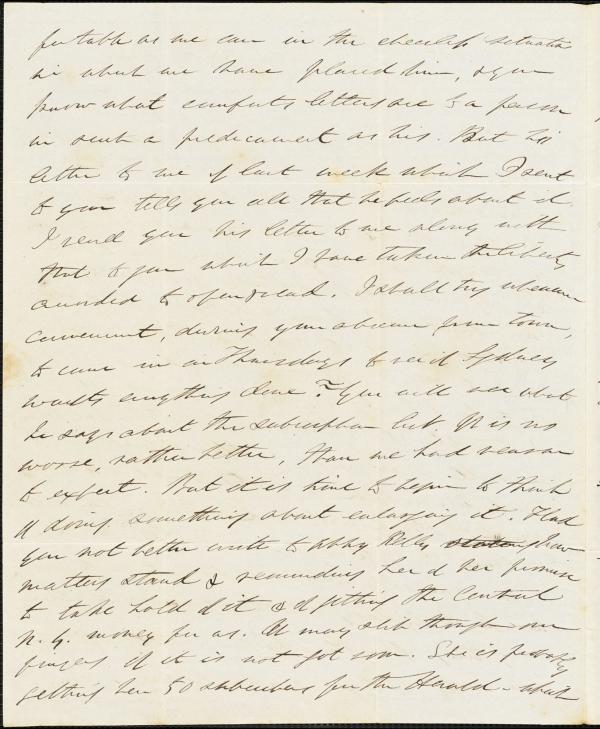 fortable as we can in the cheerless situation
in which we have placed him, & you
know what comforts letters are to a person
in such a predicament as his. But his
letter to me of last week which I sent
to you tells you all that he feels about it.
I send you his letter to me along with
that to you which I have taken the liberty
accorded to open & read. I shall try whenever
convenient, during your absence from town,
to come in on Thursdays to see if Sydney
wants anything done. You will see what
he says about the subscription list. It is no
worse, rather better, than we had reason
to expect. But it is time to begin to think
of doing something about enlarging it. Had
you not better write to Abby Kelley stating how
matters stand & reminding her of her promise
to take hold of it & of getting the Central
N. Y. money for us. It may slip through our
fingers if it is not got soon. She is probably
getting her 50 subscribers for the Herald - which